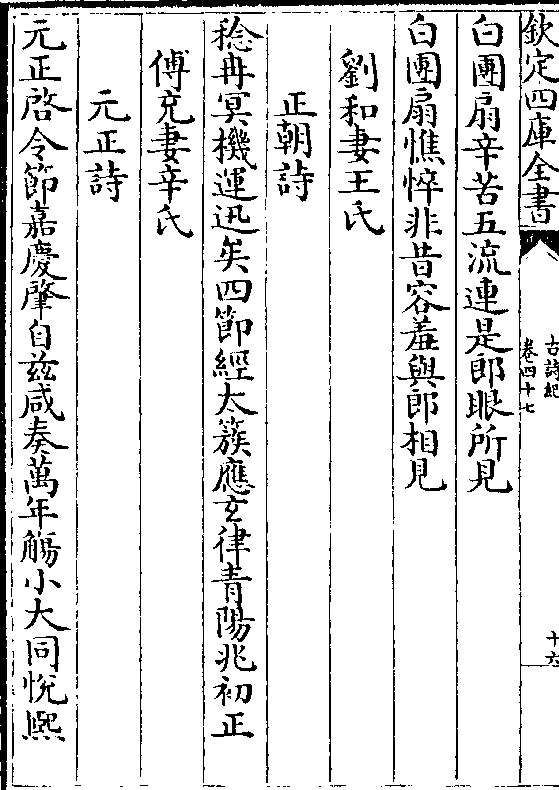 欽定四庫全書
古詩紀
卷四十七
十六
白團扇辛苦五流連是郎眼所見
白團扇憔悴非昔容羞與郎相見
劉和妻王氏
正朝詩
稔冉冥機運迅矣四節經太簇應玄律青陽兆初正
傅充妻辛氏
元正詩
元正啓令節嘉慶肇自兹咸奏萬年觴小大同悅熙